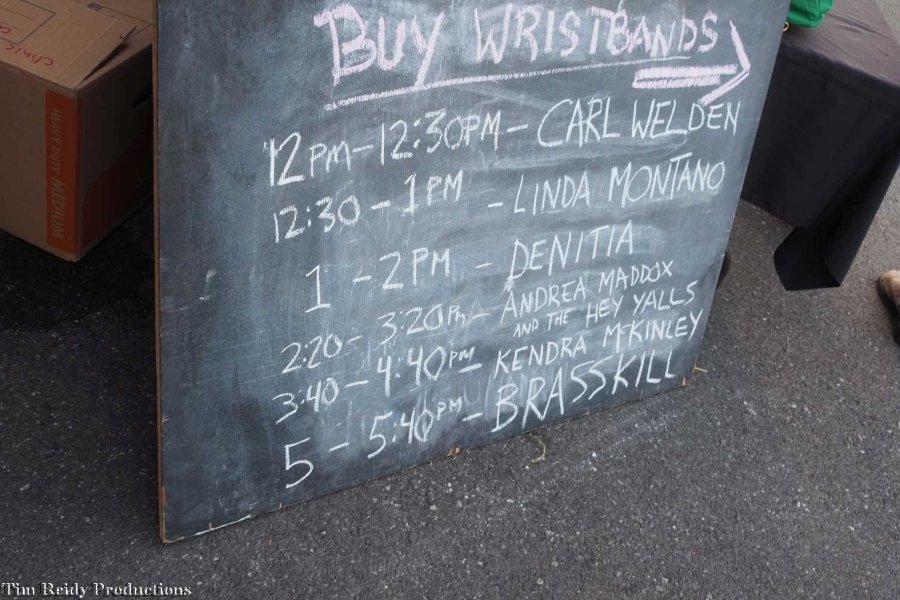 BUY WRISTBANDS
12PM-12:30PM- CARL WELDEN
12:30-1PM - LINDA MONTANO
1-2PM - DENITIA
2:20-3:20PM - ANDREA MADDOX
AND THE HEY YALLS
3:40-4:40PM- KENDRA McKINLEY
5-5:40PM- BRASSKILL
HEAVY DUTY MEDIUM
clinic
Tim Reidy Productions